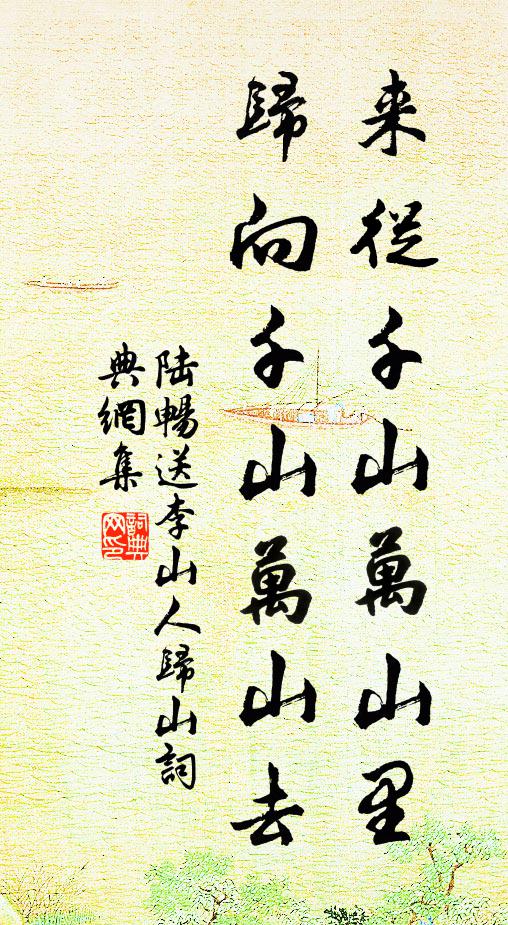 来從千山萬山里
歸向千山萬山去
陆暢送李山人歸山詞
典網集
詞典
网印